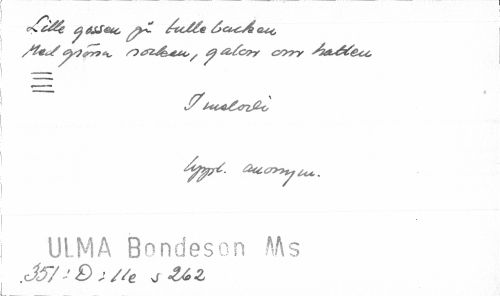 Lille gossen på tullebacken
Med gröna rocken, galon om hatten
1 melodi
Uppt. anonym.
ULMA Bondeson Ms
351:D:11e s 262